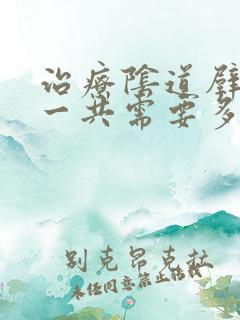 治療陰道壁
一共需要多
别克昂克拉
未经同意禁止转载